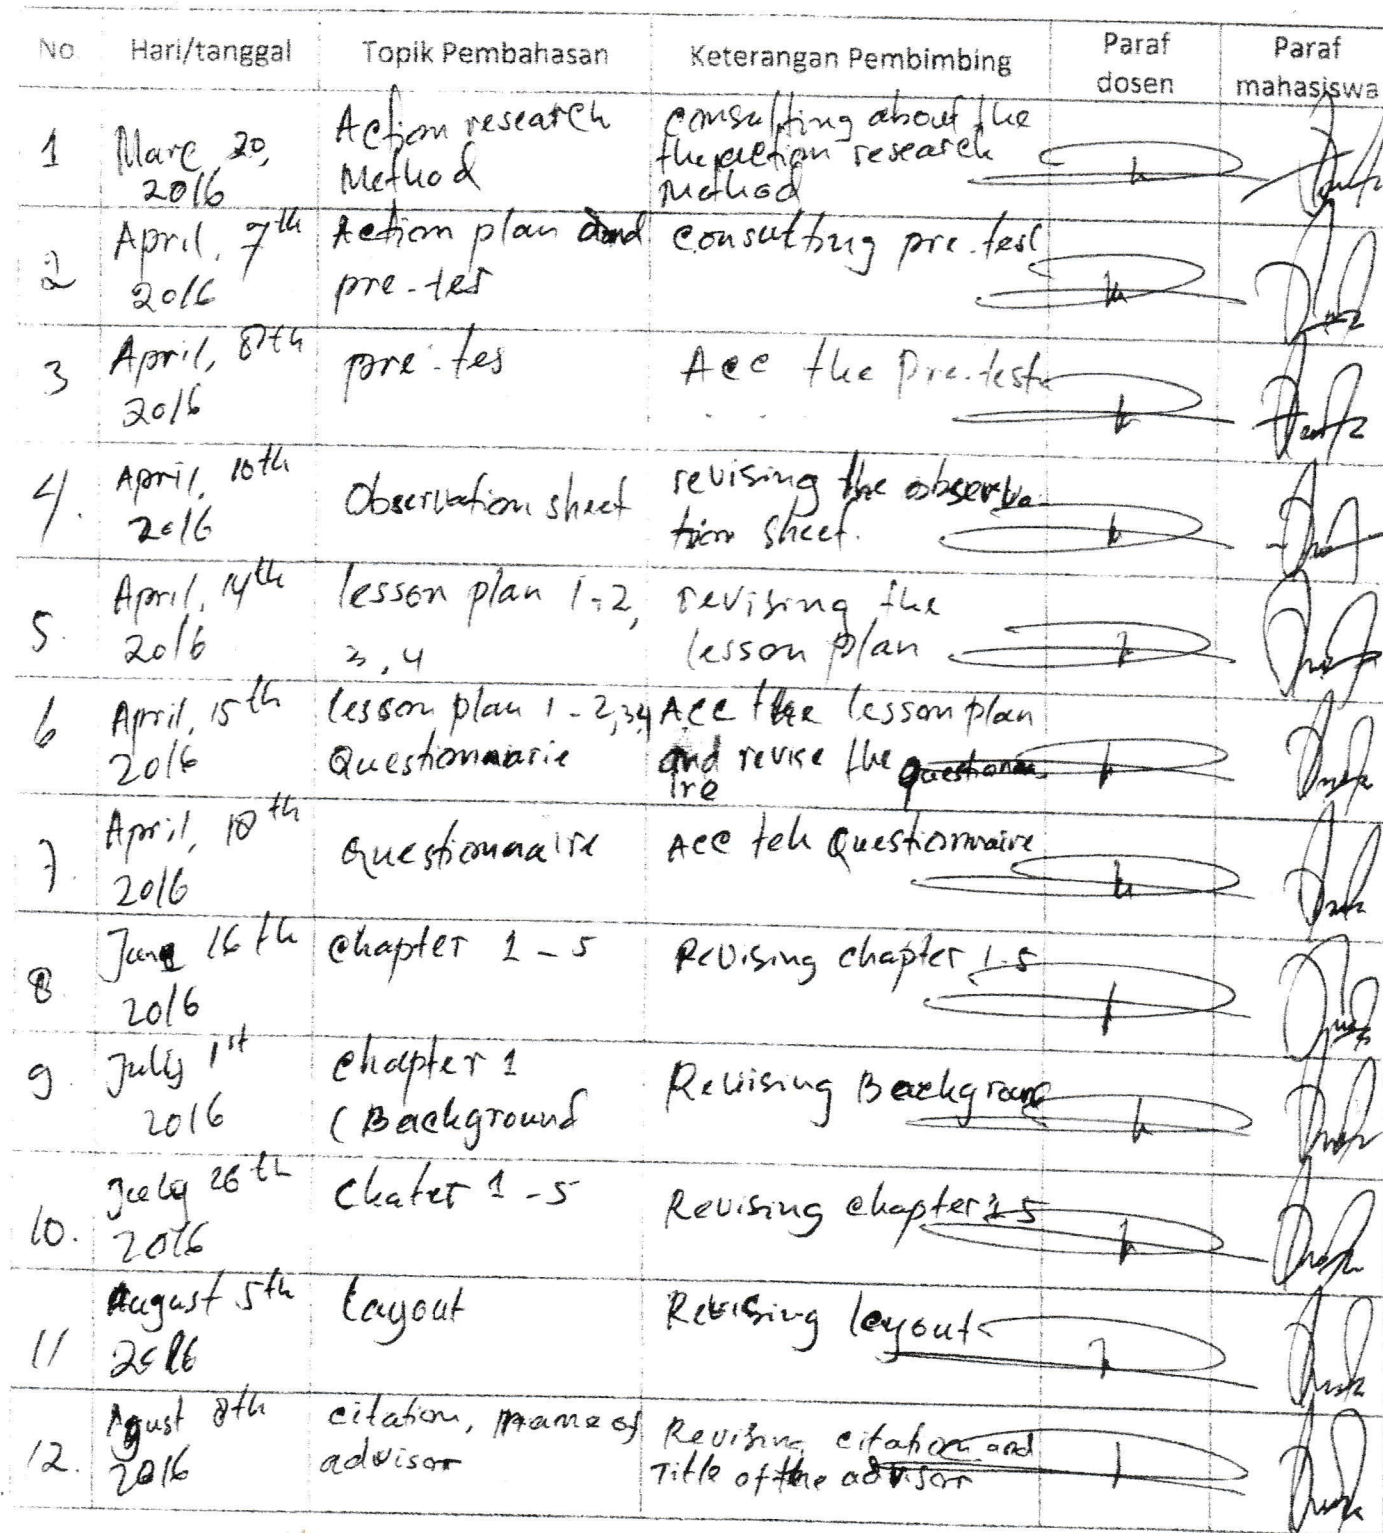 No. Hari/tanggal Topik Pembahasan Keterangan Pembimbing Paraf dosen Paraf mahasiswa
1 Marc 20, 2016 Action research Method consulting about the the action research Method
2 April, 7th 2016 Action plan and pre-tes consulting pre-test
3 April, 8th 2016 pre-tes Acc the Pre-test
4. April, 10th 2016 Observation sheet revising the observation sheet.
5. April, 14th 2016 lesson plan 1-2, 3, 4 revising the lesson plan
6 April, 15th 2016 lesson plan 1-2,3,4 Questionnarie Acc the lesson plan and revise the questionnaire
7. April, 18th 2016 questionnaire Acc teh Questionnaire
8. June 16th 2016 chapter 1-5 Revising chapter 1-5
9 July 1st 2016 chapter 1 (Background Revising Background
10. July 26th 2016 Chater 1-5 Revising chapter 1-5
11 August 5th 2016 layout Revising layout
12. Agust 8th 2016 citation, name of advisor Revising citation and Title of the advisor